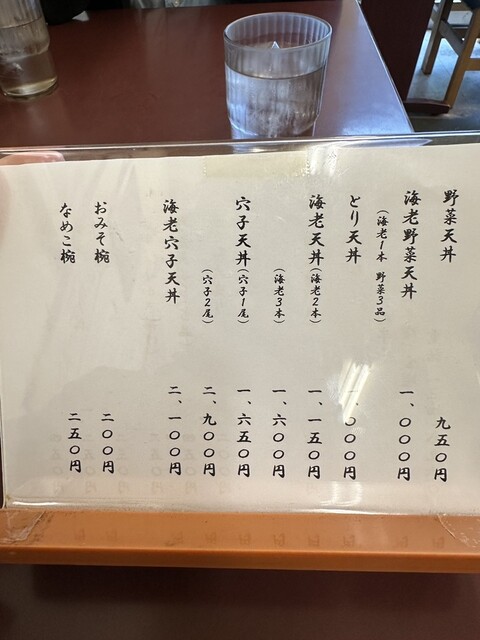 野菜天丼 九五〇円
海老野菜天丼 一、〇〇〇円
(海老1本 野菜3品)
とり天丼 一、〇〇〇円
海老天丼(海老2本) 一、一五〇円
(海老3本) 一、六〇〇円
穴子天丼(穴子1尾) 一、六五〇円
(穴子2尾) 二、九〇〇円
海老穴子天丼 二、一〇〇円
おみそ椀 二〇〇円
なめこ椀 二五〇円